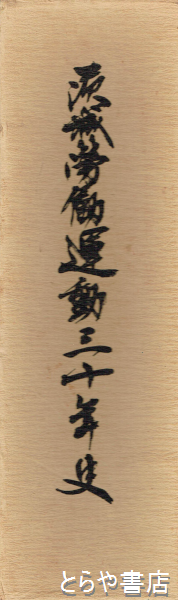 茨城勞働運動三十年史
とらや書店